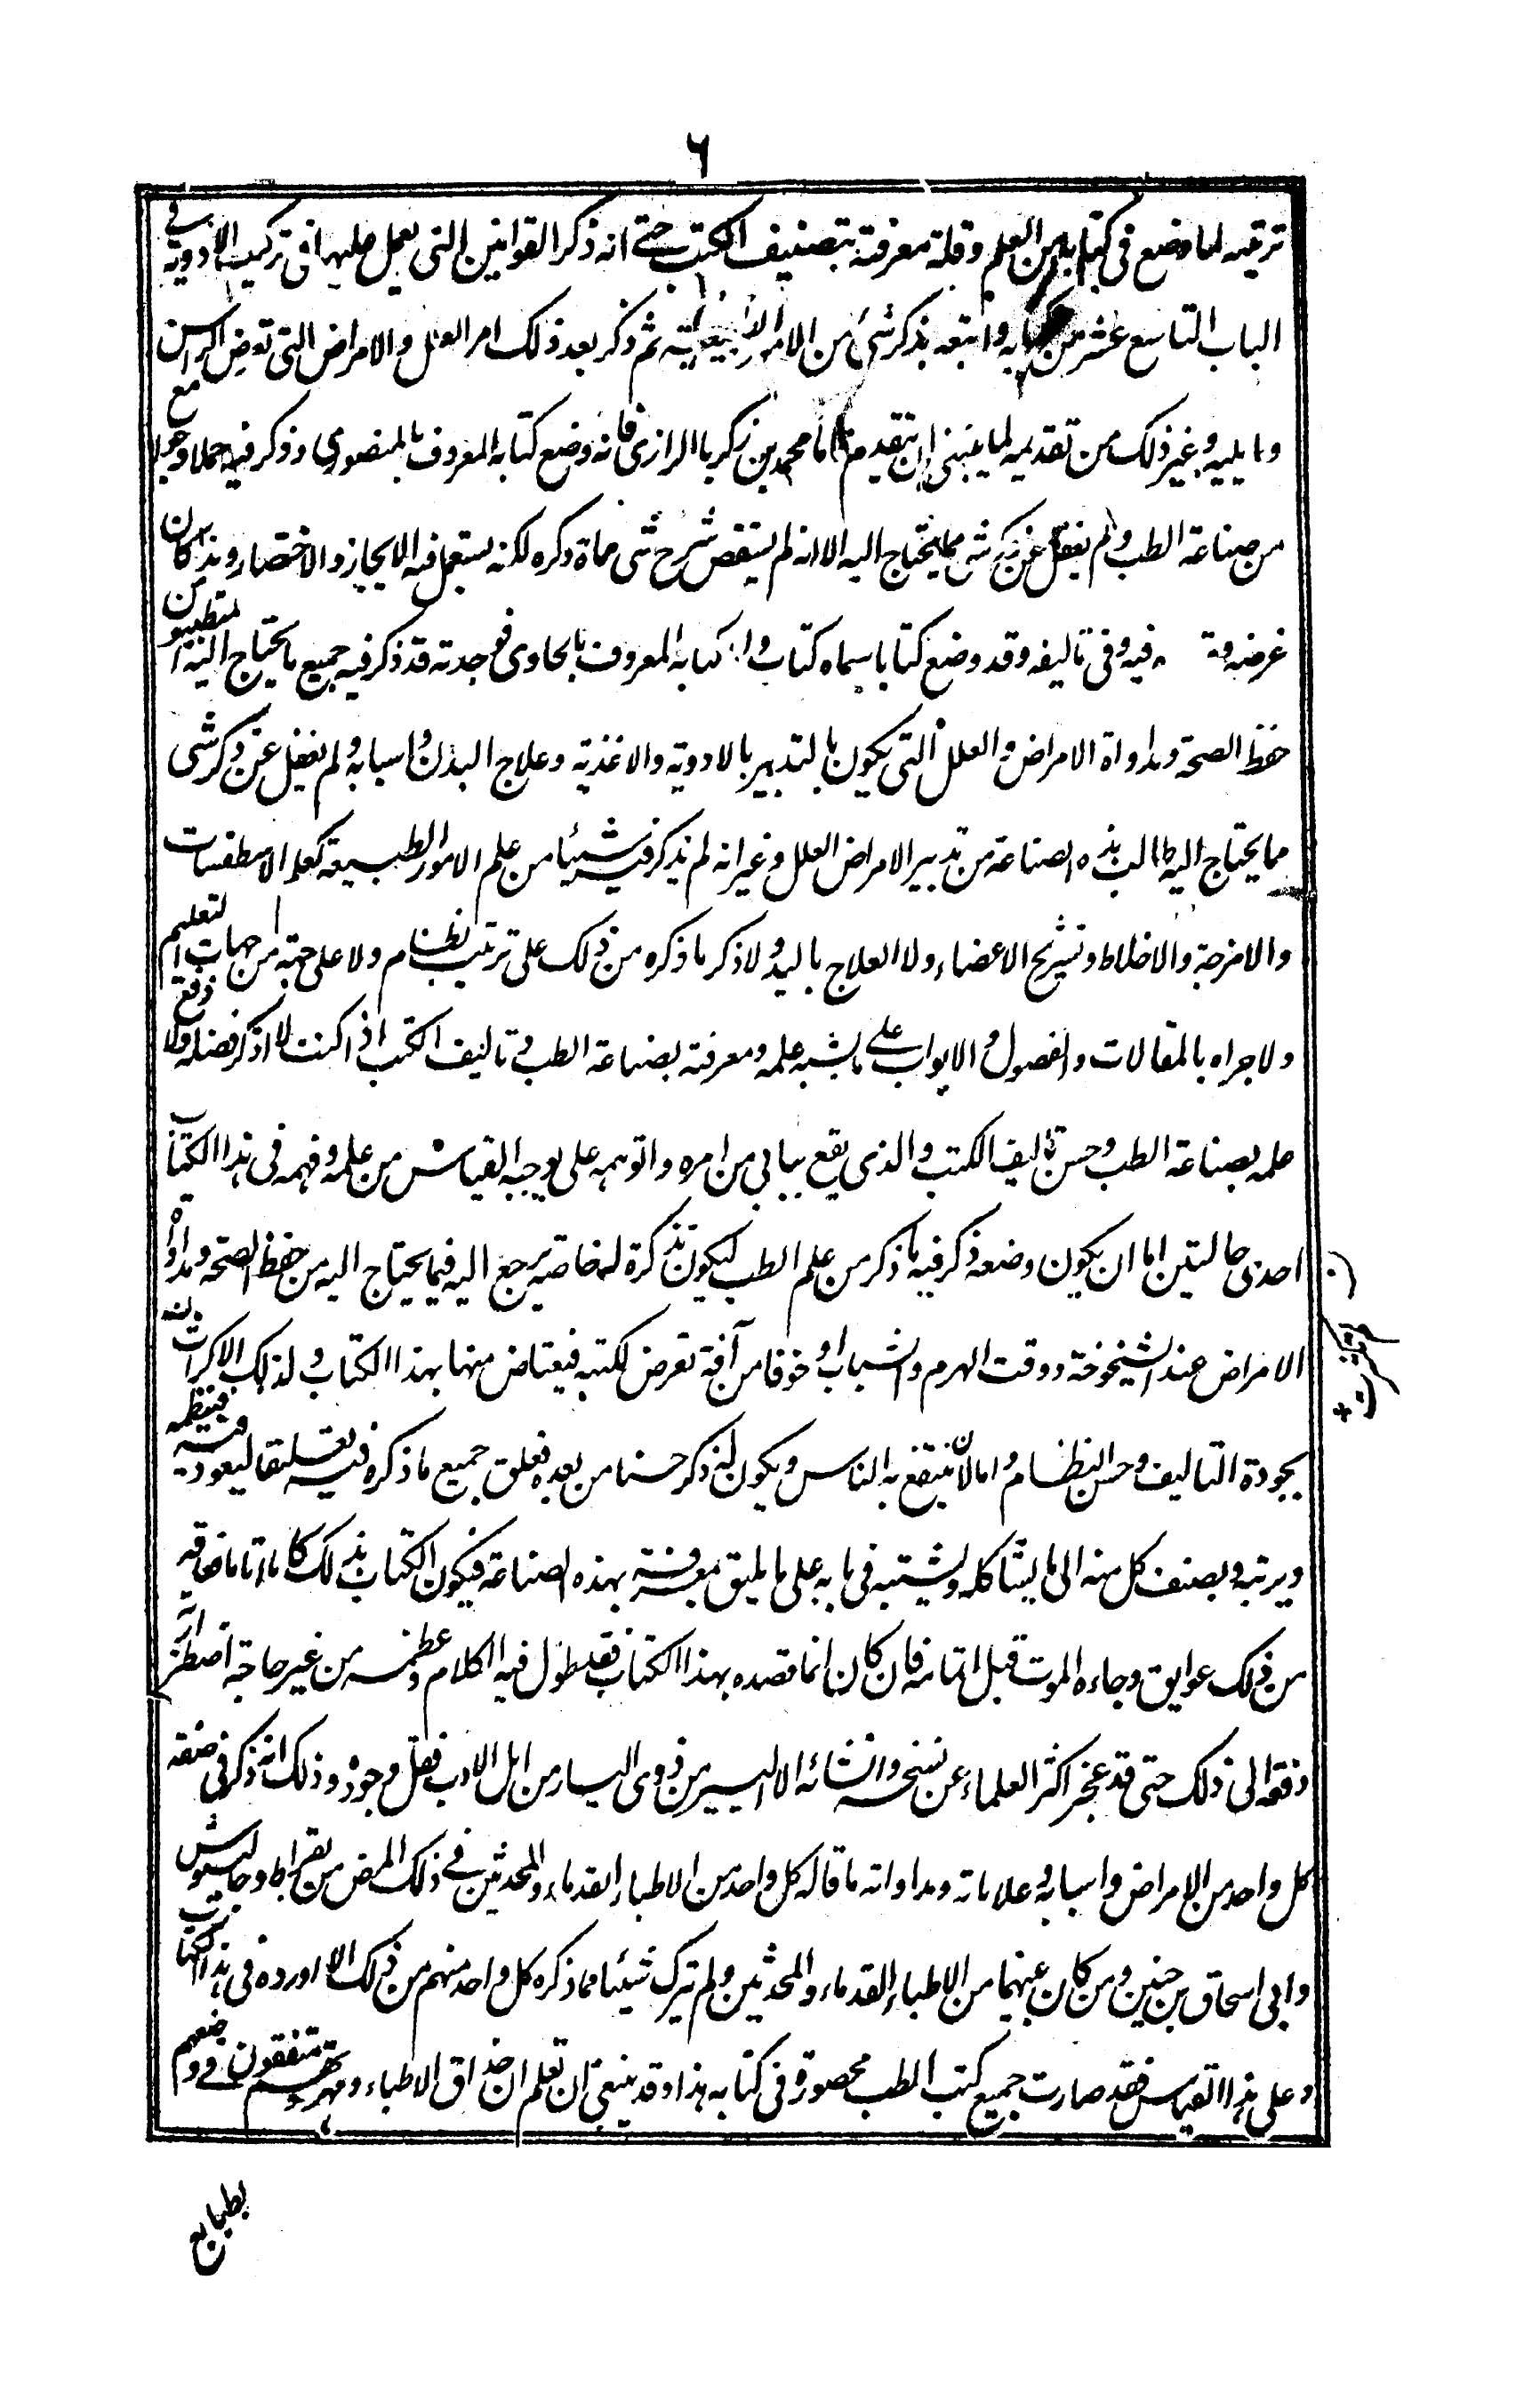 ٦
ترتيبه لما وضع فى كتابه من العلم وقلة معرفته بتصنيف الكتب حتى انه ذكر القوانين التى يعمل عليها فى تركيب الادوية فى
الباب التاسع عشر من كتابه واتبعه بذكر شئ من الامور الطبيعية ثم ذكر بعد ذلك امر العلل والامراض التى تعرض
وما يليه وغير ذلك من تقديمه لما ينبغى ان يتقدم فاما محمد بن زكريا الرازى فانه وضع كتابه المعروف بالمنصورى وذكر فيه جملا وجوامع
من صناعة الطب ولم يغفل عن ذكر شئ مما يحتاج اليه الا انه لم يستقص شرح شى مماة ذكره لكنه يستعمل فيه الايجاز والاختصار وهذا كان
غرضه فيه وفى تاليفه وقد وضع كتابا سماه كتاب كتابه المعروف بالحاوى فوجدته قد ذكر فيه جميع ما يحتاج اليه المتطببون من
حفظ الصحة ومداواة الامراض والعلل التى يكون بالتدبير بالادوية والاغذية وعلاج البدن واسبابه ولم يغفل عن ذكر شى
مما يحتاج اليه طالب هذه الصناعة من تدبير الامراض العلل وغير انه لم يذكر فيه شيئا من علم الامور الطبيعية كعلم الاسطقسات
والامزجة والاخلاط وتشريح الاعضاء ولا العلاج باليد ولا ذكر ما ذكره من ذلك على ترتيب نظام ولا على جهة من جهات التعليم
ولا جزاه بالمقالات والفصول والابواب على ما يشبه علمه ومعرفته بصناعة الطب وتاليف الكتب اذ اكنت لا اذكر فضله ولا ادفع
علمه بصناعة الطب وحسن تاليف الكتب والذى يقع ببالى من امره واتوهمه على يوجبه القياس من علمه وفهمه فى هذا الكتاب
احدى حالتين اما ان يكون وضعه ذكر فيه ما ذكر من علم الطب ليكون تذكرة له خاصة يرجع اليه فيما يحتاج اليه من حفظ الصحة ومداواة
الامراض عند الشيخوخة ووقت الهرم والشباب او خوفا من آفة تعرض لكتبه فيعتاض منها بهذا الكتاب ولذلك
بجودة التاليف وحسن النظام واما لان ينتفع به الناس ويكون له ذكر حسنا من بعده فعلق جميع ما ذكره فيه تعليقا ليعود فيه فينظمه
ويرتبه ويصنف كل منه الى ما يشاكله ويشتبه فى بابه على ما يليق بمعرفته بهذه الصناعة فيكون الكتاب بذلك كاملا تاما فعاقه
من ذلك عوايق وجاءه الموت قبل اتمامه فان كان انما قصده بهذا الكتاب فقد طول فيه الكلام وعظمه من غير حاجة اضطرارية
دفعه الى ذلك حتى قد عجز اكثر العلماء عن نسخه وانشائه الا اليسير من ذوى اليسار من اهل الادب فقل وجوده وذلك انه ذكر فى صفة
كل واحد من الامراض واسبابه وعلاماته ومداواته ما قاله كل واحد من الاطباء القدماء والمحدثين فى ذلك المرض من بقراط وجالينوس
وابى اسحاق بن حنين ومن كان بينهما من الاطباء القدماء والمحدثين ولم يترك شيئا مما ذكره كل واحد منهم من ذلك الا اورده فى هذا الكتاب
وعلى هذا القياس فقد صارت جميع كتب الطب محصورة فى كتابه هذا وقد ينبغى ان تعلم ان حذاق الاطباء ومهرتهم متفقون فى وضعهم
بطبايع